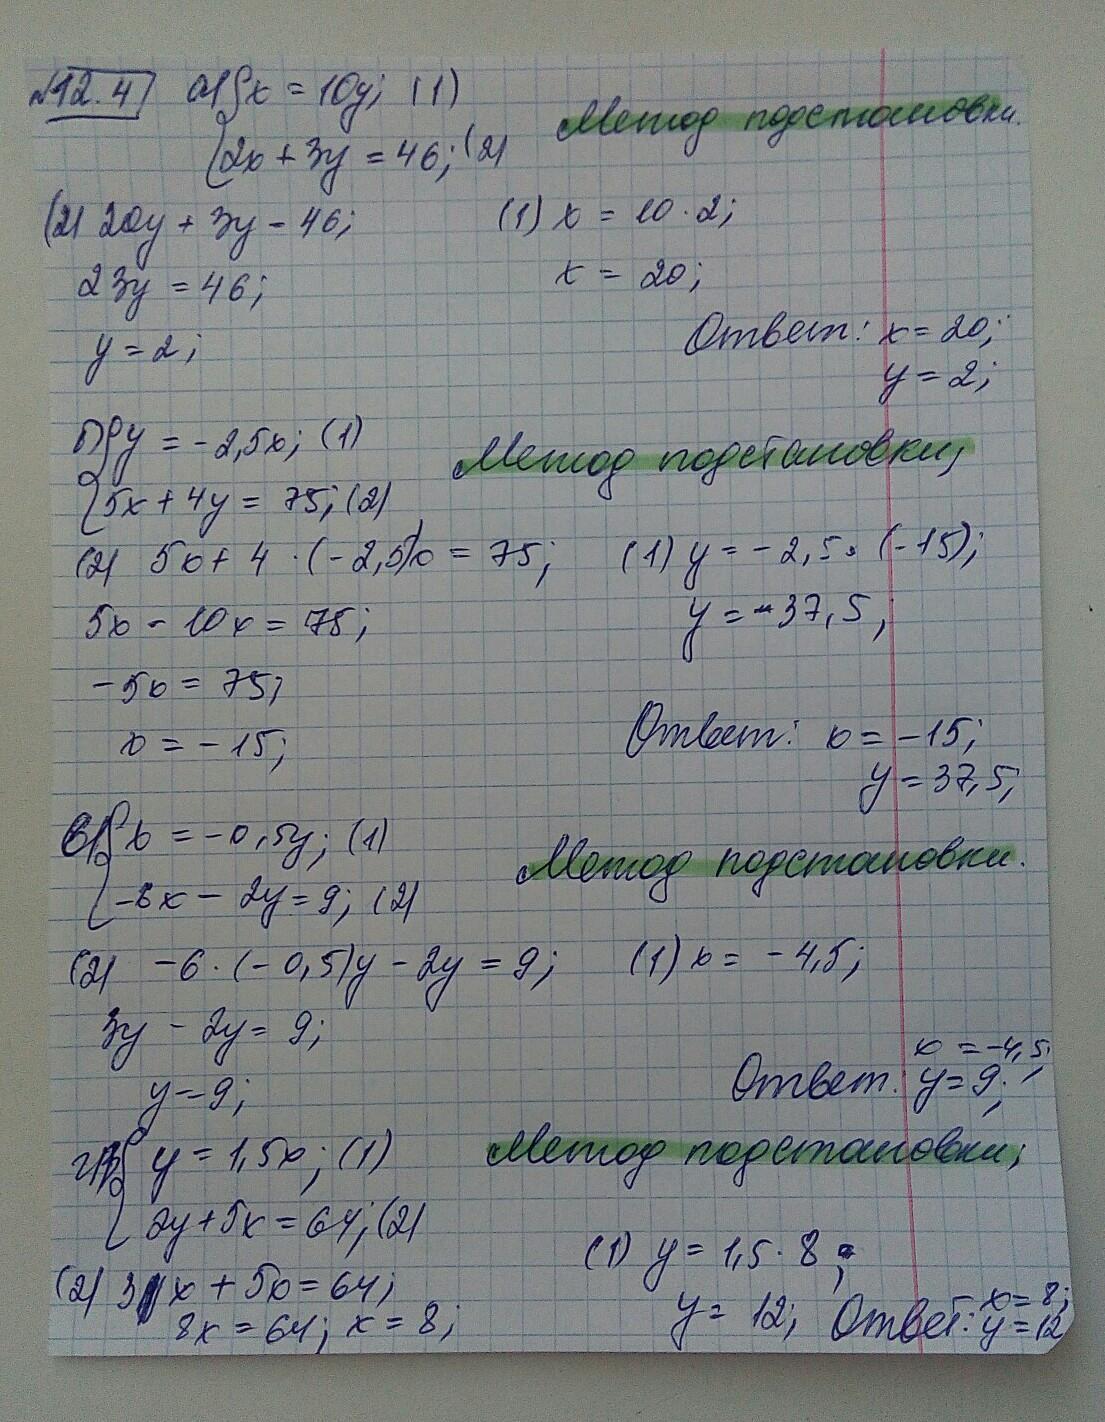 №12.4 а) { x = 10y; (1)
Метод подстановки.
2x + 3y = 46; (2)
(2) 20y + 3y = 46;
(1) x = 10 · 2;
23y = 46;
x = 20;
y = 2;
Ответ: x = 20;
y = 2;
б) { y = -2,5x; (1)
Метод подстановки;
5x + 4y = 75; (2)
(2) 5x + 4 · (-2,5)x = 75;
(1) y = -2,5 · (-15);
5x - 10x = 75;
y = -37,5;
-5x = 75;
x = -15;
Ответ: x = -15;
y = 37,5;
в) { x = -0,5y; (1)
Метод подстановки.
-6x - 2y = 9; (2)
(2) -6 · (-0,5)y - 2y = 9;
(1) x = -4,5;
3y - 2y = 9;
x = -4,5;
y = 9;
Ответ. y = 9;
г) { y = 1,5x; (1)
Метод подстановки;
2y + 5x = 64; (2)
(1) y = 1,5 · 8;
(2) 3x + 5x = 64;
8x = 64; x = 8;
y = 12;
Ответ: x = 8;
y = 12